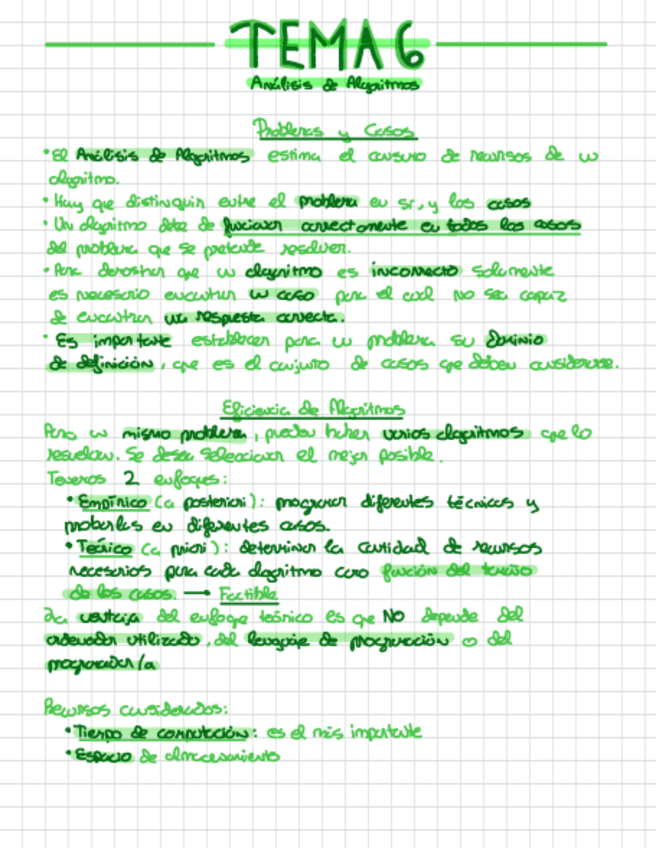 TEMA 6
Análisis de Algoritmos
Problemas y Casos
• El Análisis de Algoritmos estima el consumo de recursos de un
algoritmo.
• Hay que distinguir entre el problema en sí, y los casos
• Un algoritmo debe de funcionar correctamente en todos los casos
del problema que se pretende resolver.
• Para demostrar que un algoritmo es incorrecto solamente
es necesario encontrar un caso para el cual no sea capaz
de encontrar una respuesta correcta.
• Es importante establecer para un problema su Dominio
de definición, que es el conjunto de casos que deben considerarse.
Eficiencia de Algoritmos
Para un mismo problema, pueden haber varios algoritmos que lo
resuelvan. Se desea seleccionar el mejor posible.
Tenemos 2 enfoques:
• Empírico (a posteriori): programar diferentes técnicas y
probarlas en diferentes casos.
• Teórico (a priori): determinar la cantidad de recursos
necesarios para cada algoritmo como función del tamaño
de los casos → Factible
La ventaja del enfoque teórico es que NO depende del
ordenador utilizado, del lenguaje de programación o del
programador/a
Recursos considerados:
• Tiempo de computación: es el más importante
• Espacio de almacenamiento